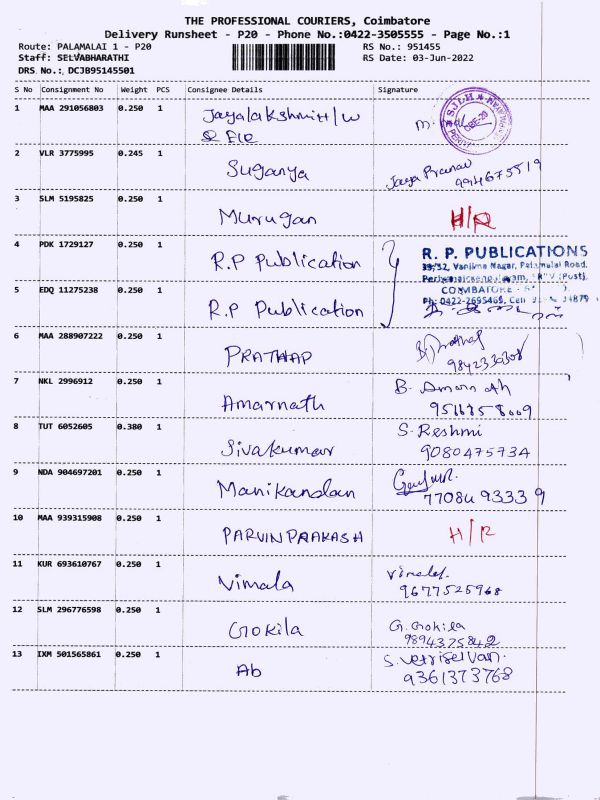 THE PROFESSIONAL COURIERS, Coimbatore
Delivery Runsheet - P20 - Phone No.:0422-3505555 - Page No.:1
Route: PALAMALAI 1 - P20
RS No.: 951455
Staff: SELVABHARATHI
RS Date: 03-Jun-2022
DRS No.: DCJB95145501
S No Consignment No Weight PCS Consignee Details Signature
1 MAA 291056803 0.250 1 Jayalakshmi H/W
2 VLR 3775995 0.245 1 Suganya Jaya Pranav
9994675519
3 SLM 5195825 0.250 1 Murugan H/R
4 PDK 1729127 0.250 1 R.P Publication R. P. PUBLICATIONS
Road,
(Post),
COIMBATORE
5 EDQ 11275238 0.250 1 R.P Publication Ph: 0422-2695469, Cell
6 MAA 288907222 0.250 1 PRATHAP
7 NKL 2996912 0.250 1 Amarnath B. Amarnath
8 TUT 6052605 0.380 1 Sivakumar S. Reshmi
9080475734
9 NDA 904697201 0.250 1 Manikandan
77084 93339
10 MAA 939315908 0.250 1 PARVIN PRAKASH H/R
11 KUR 693610767 0.250 1 Vimala
9677525968
12 SLM 296776598 0.250 1 Gokila G. Gokila
9894375842
13 IXM 501565861 0.250 1 Ab S. Vetriselvan.
9361373768